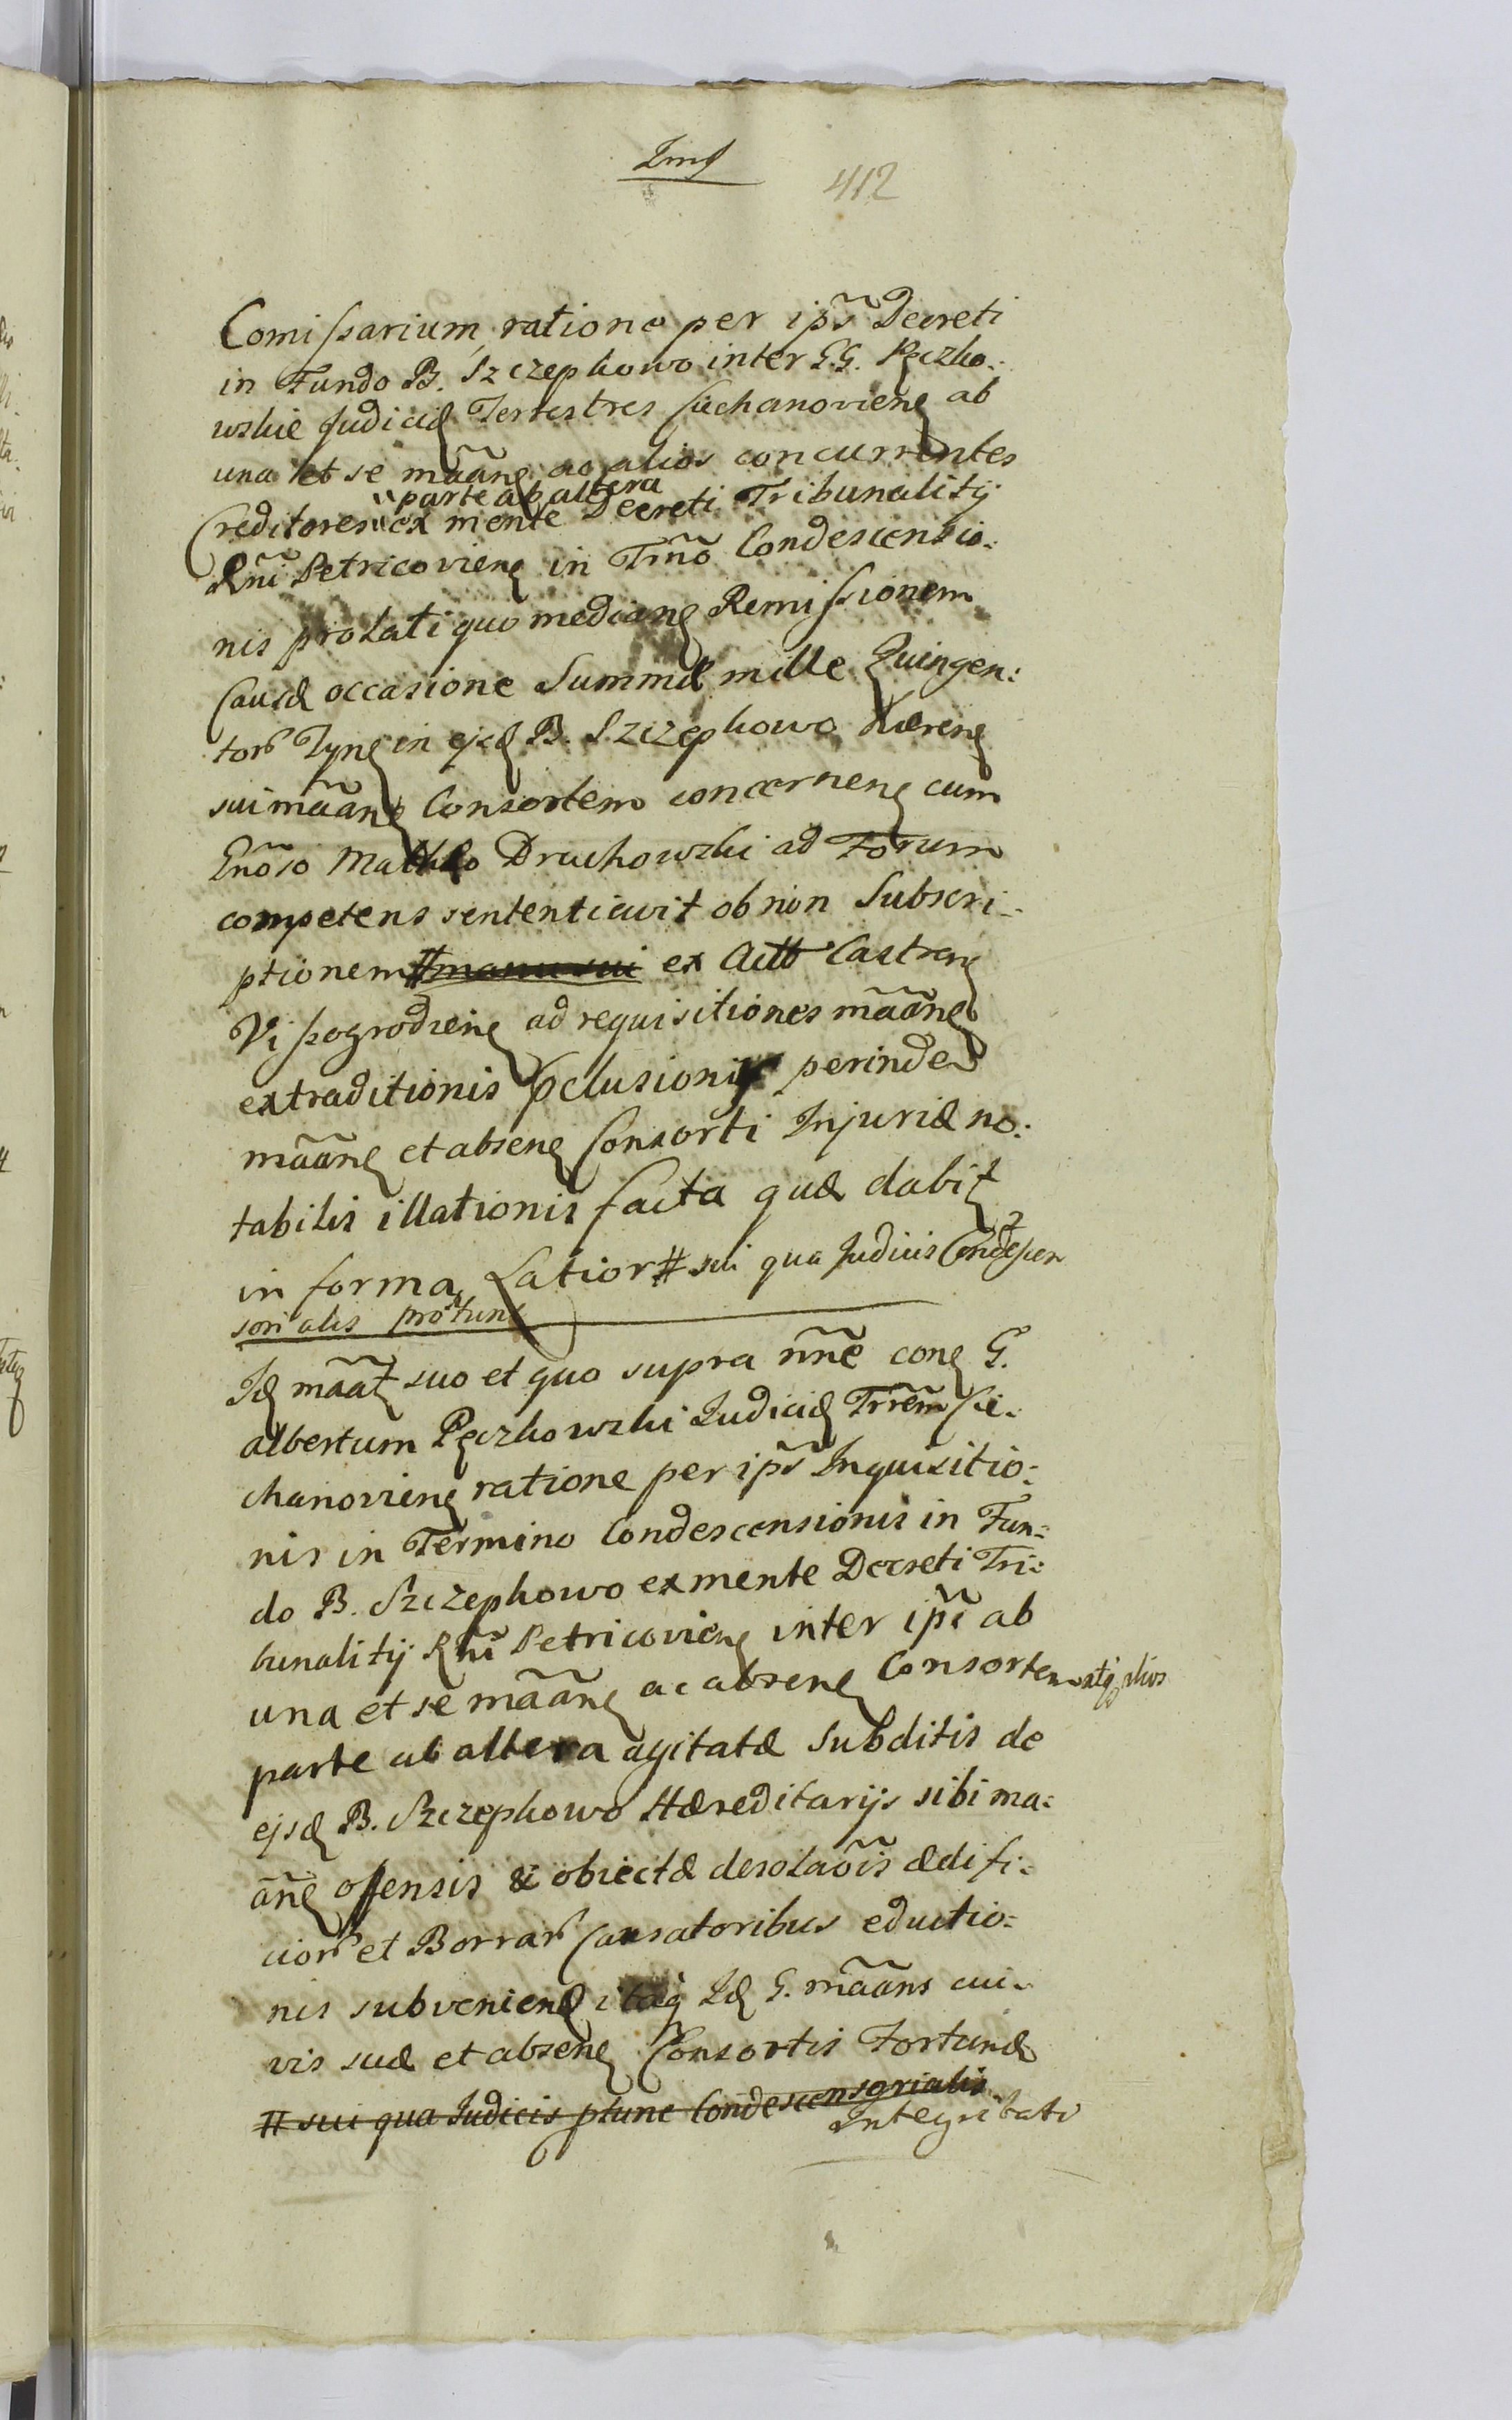 412
Comissarium ratione per ips̃ Decreti
in Fundo B. Szczepkowo inter G.G. Pęczko:
wskie Judicẽ Terrestres Ciechanovienẽ ab
una et se mããnẽ ac alios concurrentes
parte ab altera
Creditores ex mente Decreti Tribunalitij
Rñi Petricovienẽ in Trñõ Condescensio:
nis prolati quo medianẽ Remissionem
Causæ occasione Summæ mille Quingen:
tor Tynf in ejsd B. Szczepkowo Hærenẽ
sui mããnẽ Consortem concernenẽ cum
Gnõso Mathæo Druchowski ad Forum
competens sententiavit ob non Subscri:
ptionem # manu sui ex Actt Castrenẽ
Vissogrodienẽ ad requisitiones mããnẽ
extraditionis pclusionis perinde
mããnẽ et absenẽ Consorti Injuriæ no:
tabilis illationis facta quæ dabit
in forma Latior # sui qua Judicis Condescen
sorialis protunc
Id mããt suo et quo supra nñe conẽ G.
albertum Pęczkowski Judicẽ Trrem Cie:
chanovienẽ ratione per ips̃ Inquisitio:
nis in Termino Condescensionis in Fun:
do B. Szczepkowo ex mente Decreti Tri:
bunalitij Rñi Petricovienẽ inter ips̃ ab
una et se mããnẽ ac absenẽ Consortem atq alios
parte ab altera agitatæ Subditis de
ejsd B. Szczepkowo Hæreditarijs sibi ma:
ãnẽ ofensis & obiectæ desolaõis ædifi:
cior et Borrar Causatoribus eductio:
nis subveniend itaq Id G. mããns cui:
vis suæ et absenẽ Consortis Fortunæ
# sui qua Judicis ptunc Condescensorialis
Integritati